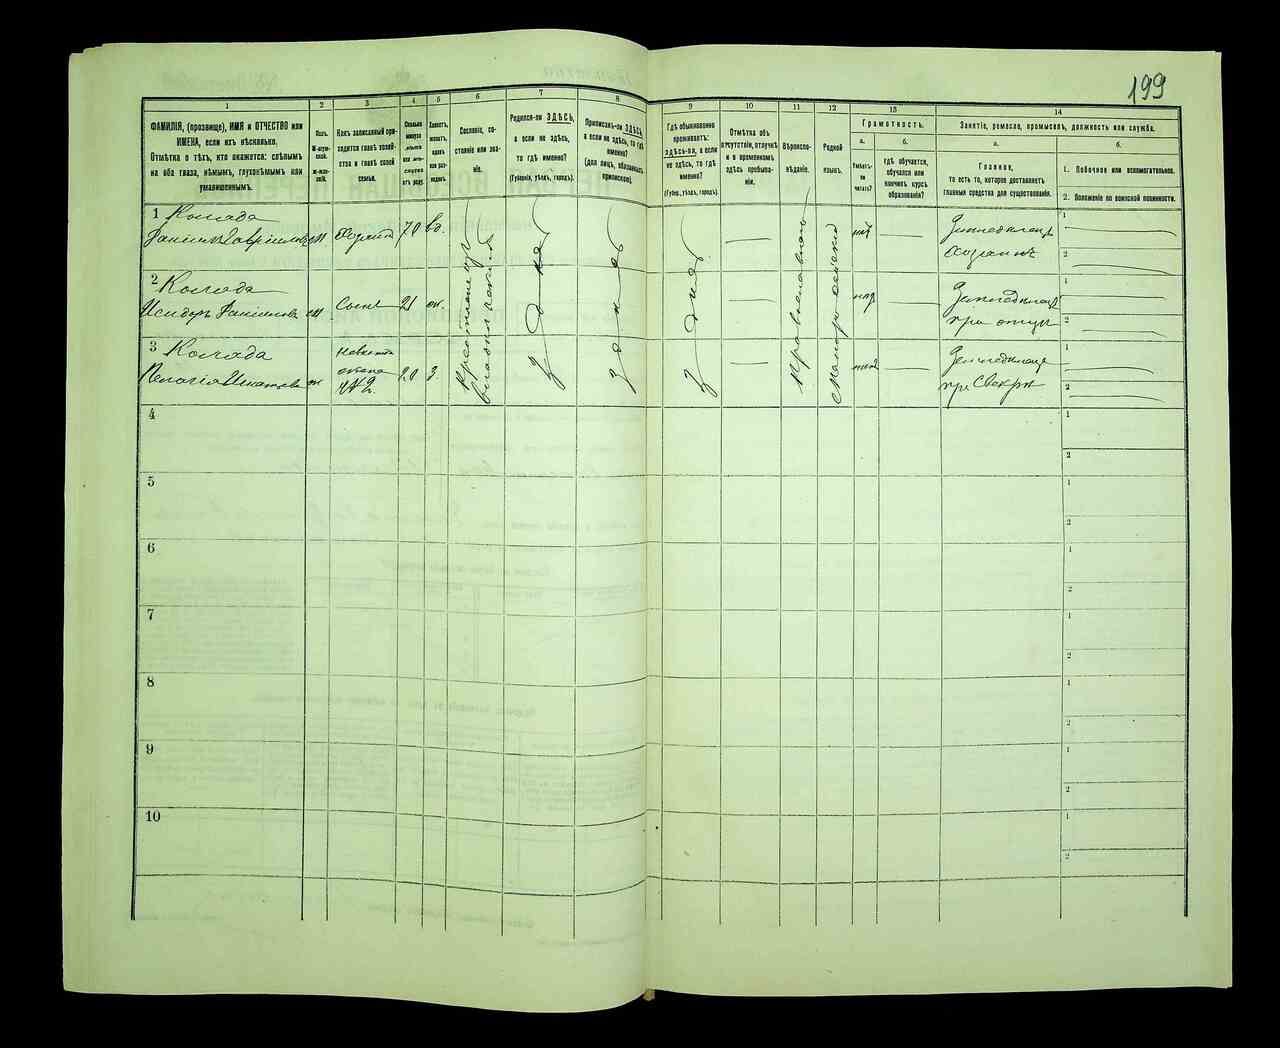 199
1
2
3
4
5
6
7
8
9
10
11
12
13
14
ФАМИЛІЯ, (прозвище), ИМЯ и ОТЧЕСТВО или
ИМЕНА, если ихъ нѣсколько.
Отмѣтка о тѣхъ, кто окажется: слѣпымъ
на оба глаза, нѣмымъ, глухонѣмымъ или
умалишеннымъ.
Полъ.
М-мужской.
Ж-женскій.
Какъ записанный приходится
главѣ хозяйства и главѣ своей
семьи.
Сколько
минуло
лѣтъ
или мѣсяцевъ
отъ роду.
Холостъ,
женатъ,
вдовъ
или разведенъ.
Сословіе, состояніе или званіе.
Родился-ли ЗДѢСЬ,
а если не здѣсь,
то гдѣ именно?
(Губернія, уѣздъ, городъ).
Приписанъ-ли ЗДѢСЬ,
а если не здѣсь, то гдѣ
именно?
(для лицъ, обязанныхъ
припискою).
Гдѣ обыкновенно
проживаетъ:
здѣсь-ли, а если
не здѣсь, то гдѣ
именно?
(Губерн., уѣздъ, городъ).
Отмѣтка объ
отсутствіи, отлучкѣ
и о временномъ
здѣсь пребываніи.
Вѣроисповѣданіе.
Родной
языкъ.
Грамотность.
а.
б.
Умѣетъ-ли
читать?
гдѣ обучается,
обучался или
кончилъ курсъ
образованія?
Занятіе, ремесло, промыселъ, должность или служба.
а.
б.
Главное,
то есть то, которое доставляетъ
главныя средства для существованія.
1. Побочное или вспомогательное.
2. Положеніе по воинской повинности.
1 Колода
Гавриловъ м Хозяинъ 70 вд.
Крестьяне изъ
Здѣсь
Здѣсь
Здѣсь
Православное
Малороссійскій
нѣтъ
Земледѣлецъ
Хозяинъ
1
2
2 Колода
Исидоръ м Сынъ 21 ж.
нѣтъ
Земледѣлецъ
при отцѣ
1
2
3 Колода
Пелагія Игнатова ж Невѣстка
жена
№ 2. 20 з.
нѣтъ
при свекрѣ
1
2
4
1
2
5
1
2
6
1
2
7
1
2
8
1
2
9
1
2
10
1
2